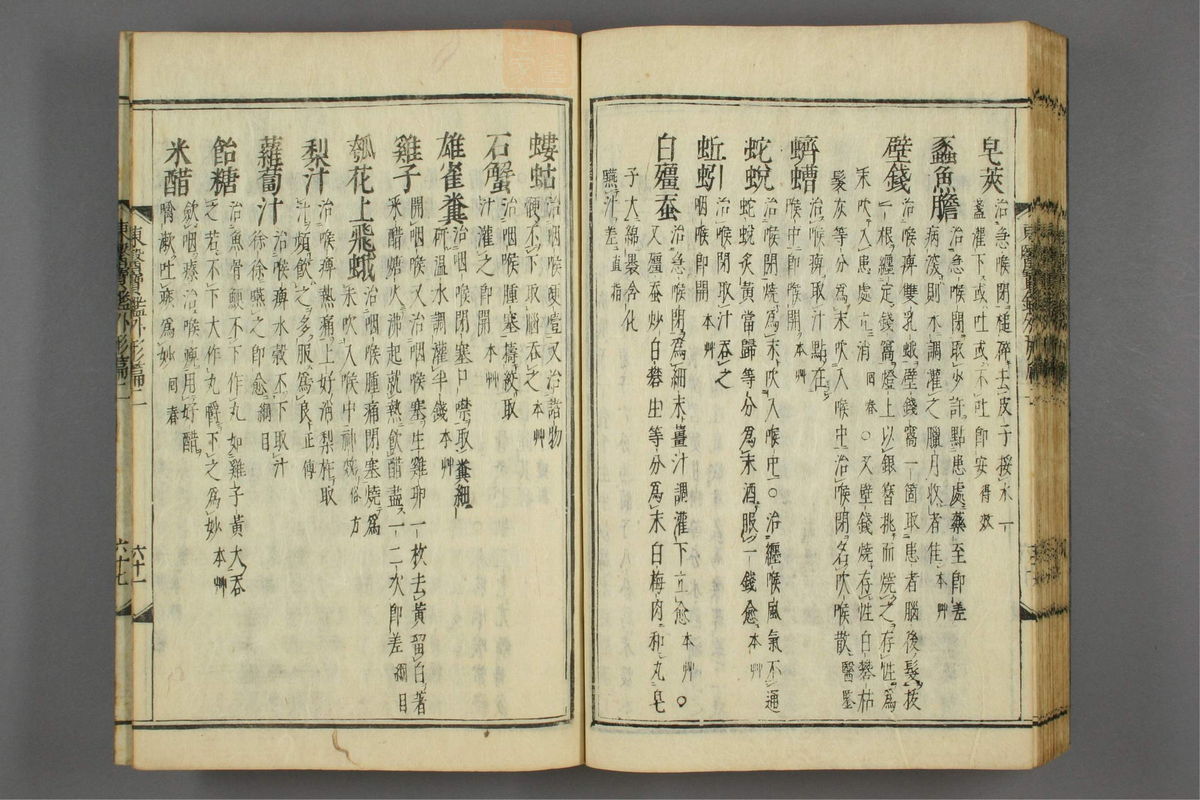 皂莢
治急喉閉槌碎去皮子挼水一
盞灌下或吐或不吐即安 得效
蠡魚膽
治急喉閉取少許點患處藥至即差
病深則水調灌之臘月收者佳 本艸
壁錢
治喉痺雙乳蛾壁錢窩一箇取患者腦後髮拔
一根纏定錢窩燈上以銀簪挑而燒之存性爲
末吹入患處立消 回春 ○又壁錢燒存性白礬枯
髮灰等分爲末吹入喉中治喉閉名吹喉散 醫鑒
蠐螬
治喉痺取汁點在
喉中即開 本艸
蛇蛻
治喉閉燒爲末吹入喉中○治纏喉風氣不通
蛇蛻炙黃當歸等分爲末酒服一錢愈 本艸
蚯蚓
治喉閉取汁吞之
咽喉即開 本艸
白殭蚕
治急喉閉爲細末薑汁調灌下立愈 本艸 ○
又殭蚕炒白礬生等分爲末白梅肉和丸皂
子大綿裹含化
嚥汁差 直指
螻蛄
治咽喉又治諸物
鯁不下取腦吞之 本艸
石蟹
治咽喉腫塞擣絞取
汁灌之即開 本艸
雄雀糞
治咽喉閉塞口噤取糞細
研溫水調灌半錢 本艸
雞子
開咽喉又治咽喉塞生雞卵一枚去黃留白著
米醋煻火沸起就熱飲醋盡一二次即差 綱目
瓠花上飛蛾
治咽喉腫痛閉塞燒爲
末吹入喉中神效 俗方
梨汁
治喉痺熱痛上好消梨杵取
汁頻飲之多服爲良 正傳
蘿蔔汁
治喉痺水穀不下取汁
徐徐嚥之即愈 綱目
飴糖
治魚骨鯁不下作丸如雞子黃大吞
之若不下大作丸嚼下之爲妙 本艸
米醋
治喉痺用好醋
漱吐痰爲妙 回春
東醫寶鑑外形篇二
六十一
六十七